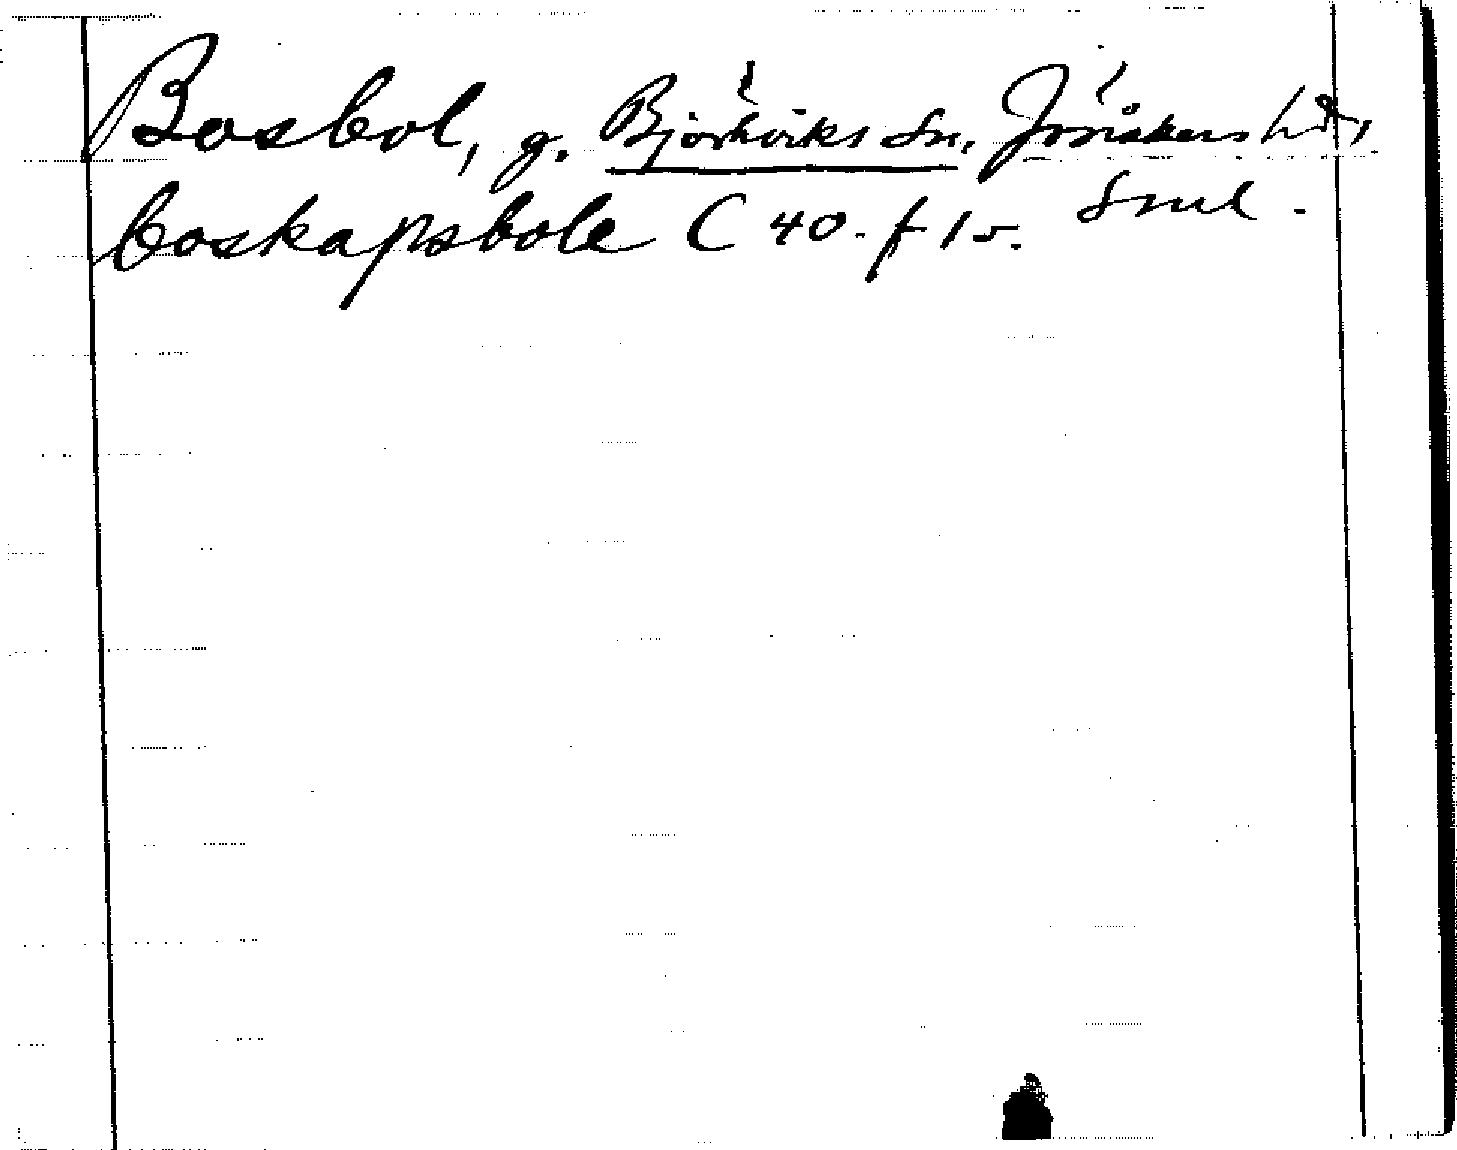 Bosbol, g. Björkviks sn. Jönåkers hd,
boskapsbole C 40. f 1 v. Sml.